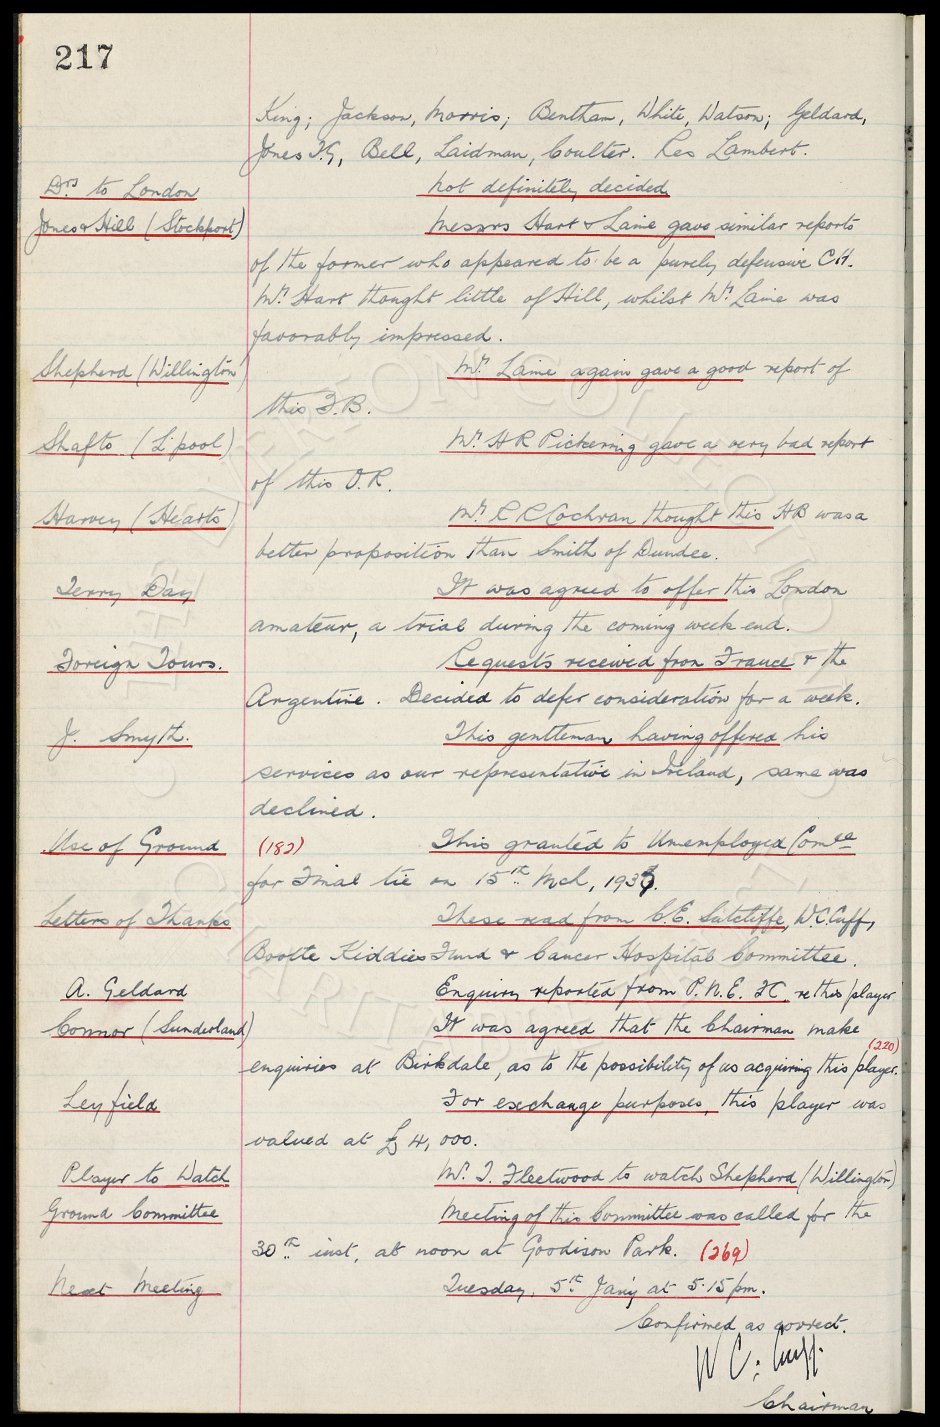 217
King; Jackson, Morris; Bentham, White, Watson; Geldard,
Jones T.G, Bell, Laidman, Coulter. Res Lambert.
Drs to London not definitely decided
Jones & Hill (Stockport) Messrs Hart & Laine gave similar reports
of the former who appeared to be a purely defensive C H.
Mr Hart thought little of Hill, whilst Mr Laine was
favorably impressed.
Shepherd (Willington) Mr Laine again gave a good report of
this F.B.
Shafto (L'pool) Mr H R Pickering gave a very bad report
of this O.R.
Harvey (Hearts) Mr R R Cochran thought this HB was a
better proposition than Smith of Dundee.
Terry Day It was agreed to offer this London
amateur, a trial during the coming week end.
Foreign Tours. Requests received from France & the
Argentine. Decided to defer consideration for a week.
J. Smyth. This gentleman having offered his
services as our representative in Ireland, same was
declined.
Use of Ground (182) This granted to Unemployed Comee
for Final tie on 15th Mch, 1937.
Letters of Thanks These read from C.E. Sutcliffe, W.C. Cuff,
Bootle Kiddies Fund & Cancer Hospital Committee.
A. Geldard Enquiry reported from P.N.E. FC re this player
Connor (Sunderland) It was agreed that the Chairman make
enquiries at Birkdale, as to the possibility of us acquiring this player. (220)
Leyfield For exchange purposes, this player was
valued at £4,000.
Player to Watch Mr. T. Fleetwood to watch Shepherd (Willington)
Ground Committee Meeting of this Committee was called for the
30th inst, at noon at Goodison Park. (269)
Next Meeting Tuesday, 5th Jan'y at 5.15 pm.
Confirmed as correct.
W C. Cuff.
Chairman
THE EVERTON COLLECTION
CHARITABLE TRUST